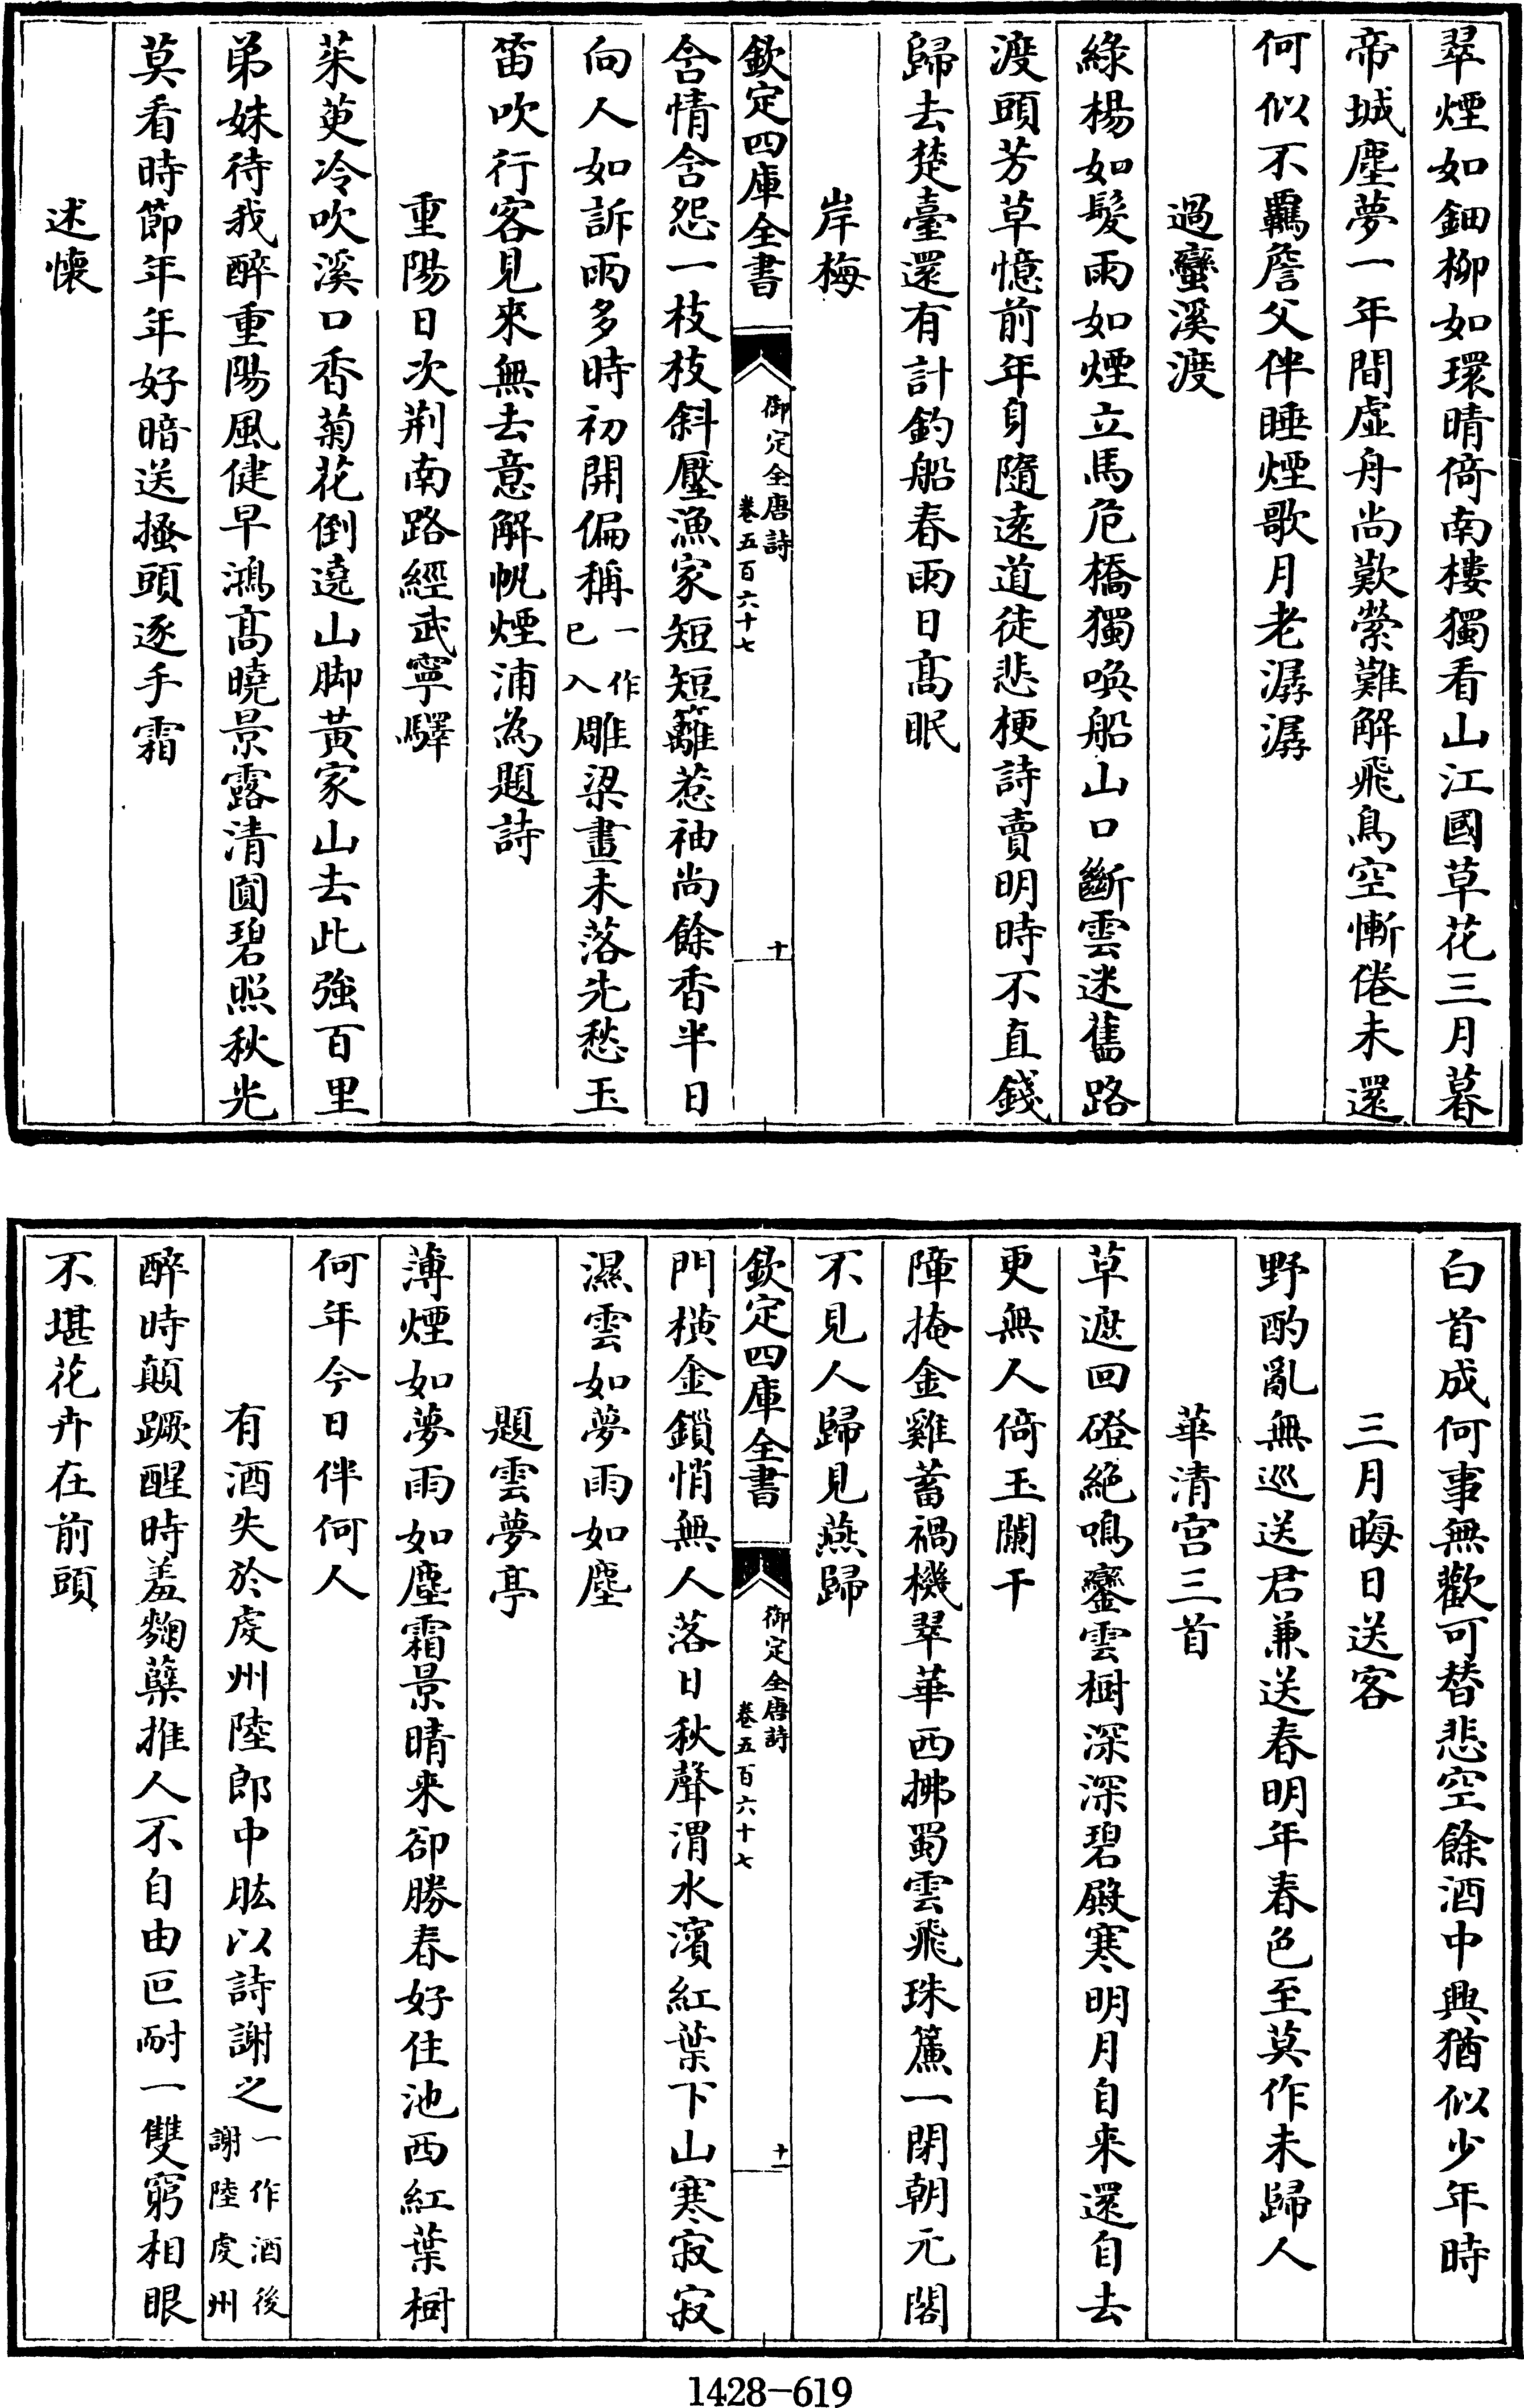 翠煙如鈿柳如環晴倚南樓獨看山江國草花三月暮
帝城塵夢一年間虛舟尚歎縈難解飛鳥空慚倦未還
何似不羈詹父伴睡煙歌月老潺潺
過蠻溪渡
綠楊如髮雨如煙立馬危橋獨喚船山口斷雲迷舊路
渡頭芳草憶前年身隨遠道徒悲梗詩賣明時不直錢
歸去楚臺還有計釣船春雨日髙眠
岸梅
欽定四庫全書
御定全唐詩
卷五百六十七
十
含情含怨一枝枝斜壓漁家短短籬惹袖尚餘香半日
向人如訴雨多時初開偏稱一作已入雕梁畫未落先愁玉
笛吹行客見來無去意解帆煙浦為題詩
重陽日次荆南路經武寧驛
茱萸冷吹溪口香菊花倒遶山脚黃家山去此強百里
弟妹待我醉重陽風健早鴻髙曉景露清圓碧照秋光
莫看時節年年好暗送搔頭逐手霜
述懷
白首成何事無歡可替悲空餘酒中興猶似少年時
三月晦日送客
野酌亂無巡送君兼送春明年春色至莫作未歸人
華清宫三首
草遮回磴絶鳴鑾雲樹深深碧殿寒明月自来還自去
更無人倚玉闌干
障掩金雞蓄禍機翠華西拂蜀雲飛珠簾一閉朝元閣
不見人歸見燕歸
欽定四庫全書
御定全唐詩
卷五百六十七
十一
門橫金鎖悄無人落日秋聲渭水濱紅葉下山寒寂寂
濕雲如夢雨如塵
題雲夢亭
薄煙如夢雨如塵霜景晴来卻勝春好住池西紅葉樹
何年今日伴何人
有酒失於虔州陸郎中肱以詩謝之一作酒後謝陸虔州
醉時顛蹶醒時羞麴糵推人不自由叵耐一雙窮相眼
不堪花卉在前頭
1428-619